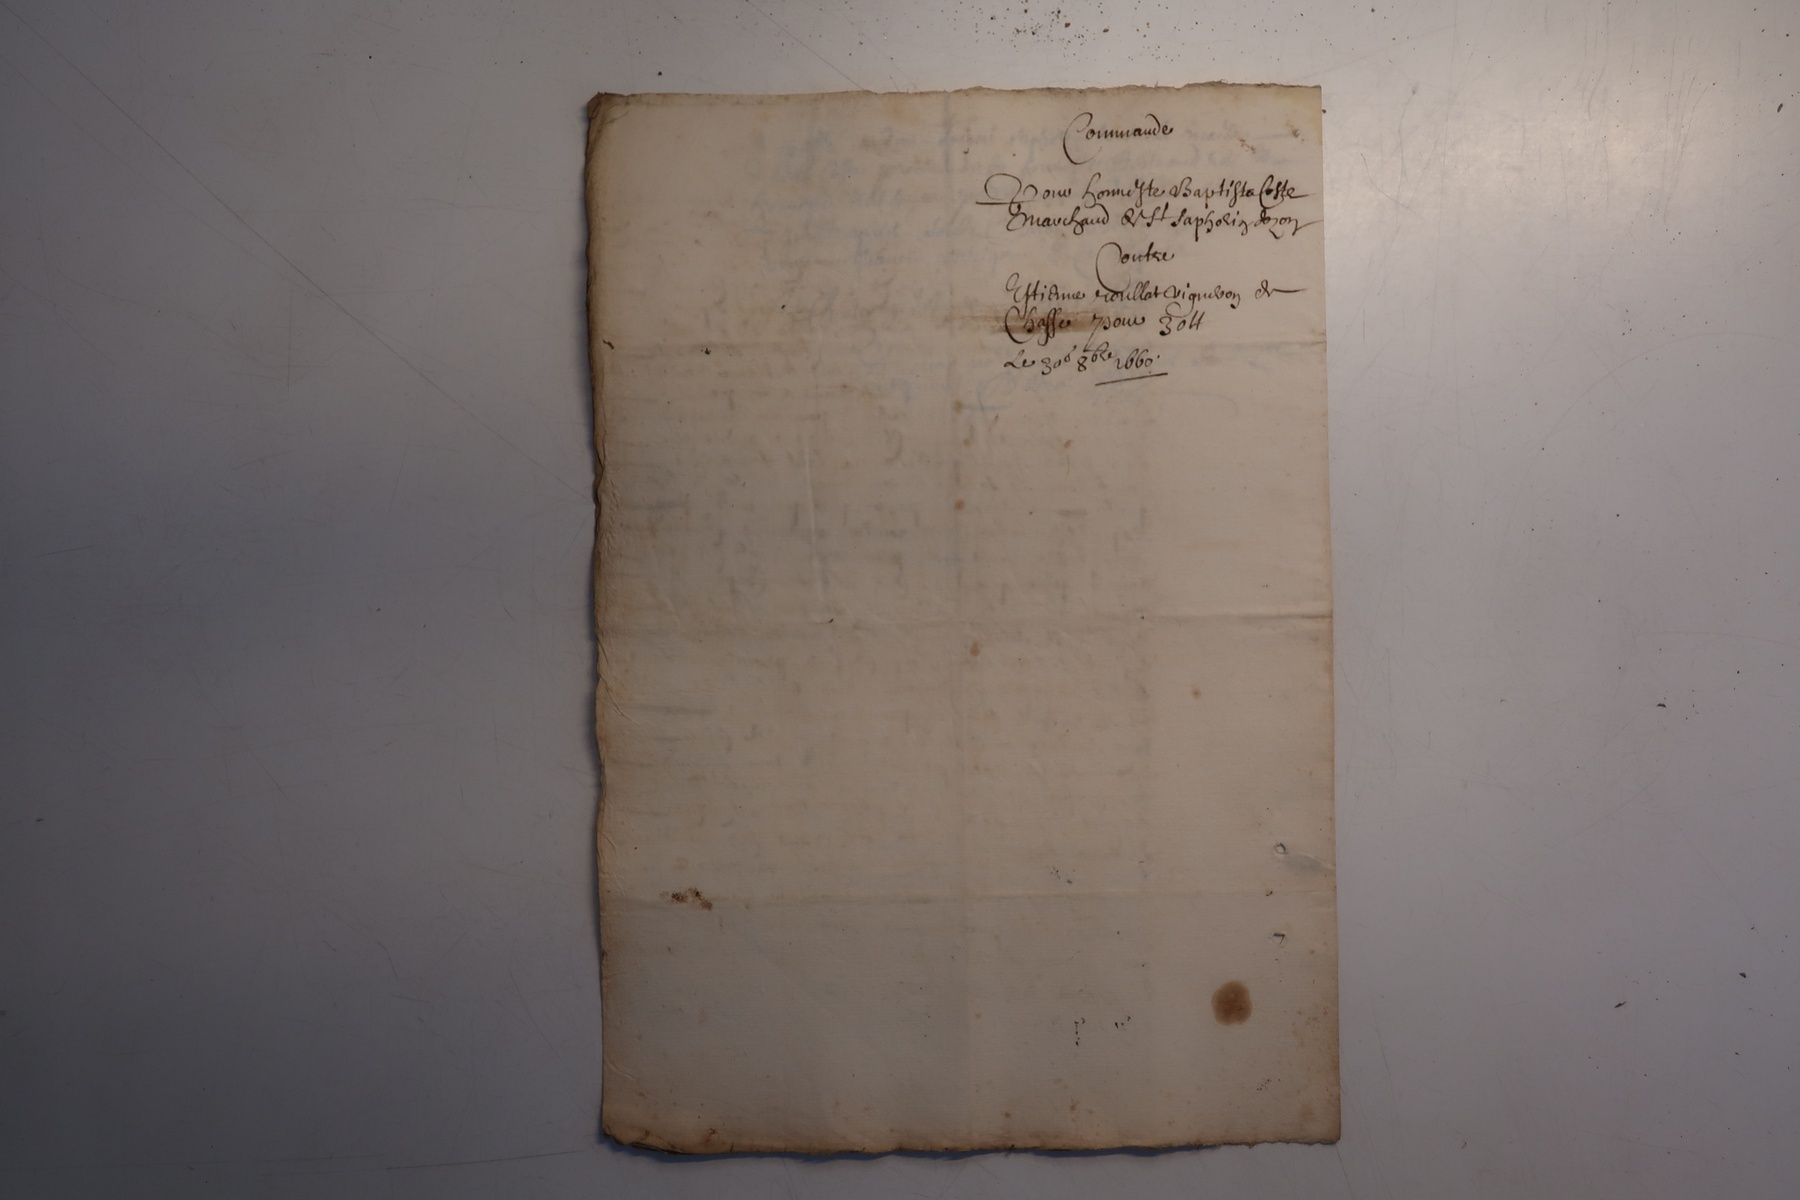 Commande
Pour honneste Baptista Coste
marchand de St Saphorin dozon
Contre
Estienne vigneron de
Chasse pour 30 ll
Le 30e 8bre 1660.